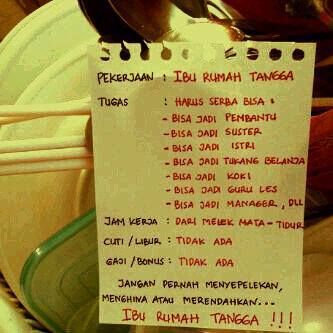 PEKERJAAN : IBU RUMAH TANGGA
TUGAS : HARUS SERBA BISA :
- BISA JADI PEMBANTU
- BISA JADI SUSTER
- BISA JADI ISTRI
- BISA JADI TUKANG BELANJA
- BISA JADI KOKI
- BISA JADI GURU LES
- BISA JADI MANAGER, DLL
JAM KERJA : DARI MELEK MATA - TIDUR
CUTI / LIBUR : TIDAK ADA
GAJI / BONUS : TIDAK ADA
JANGAN PERNAH MENYEPELEKAN,
MENGHINA ATAU MERENDAHKAN...
IBU RUMAH TANGGA !!!